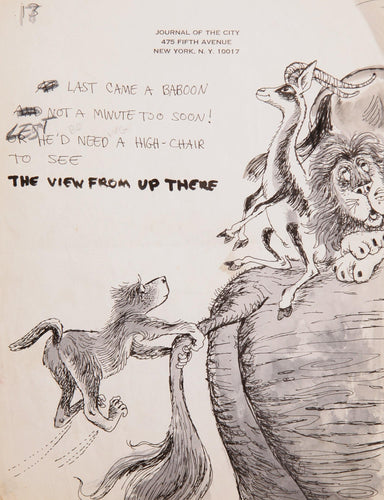 18
JOURNAL OF THE CITY
475 FIFTH AVENUE
NEW YORK, N. Y. 10017
LAST CAME A BABOON
AND NOT A MINUTE TOO SOON!
LEST
OR HE'D NEED A HIGH-CHAIR
TO SEE
THE VIEW FROM UP THERE